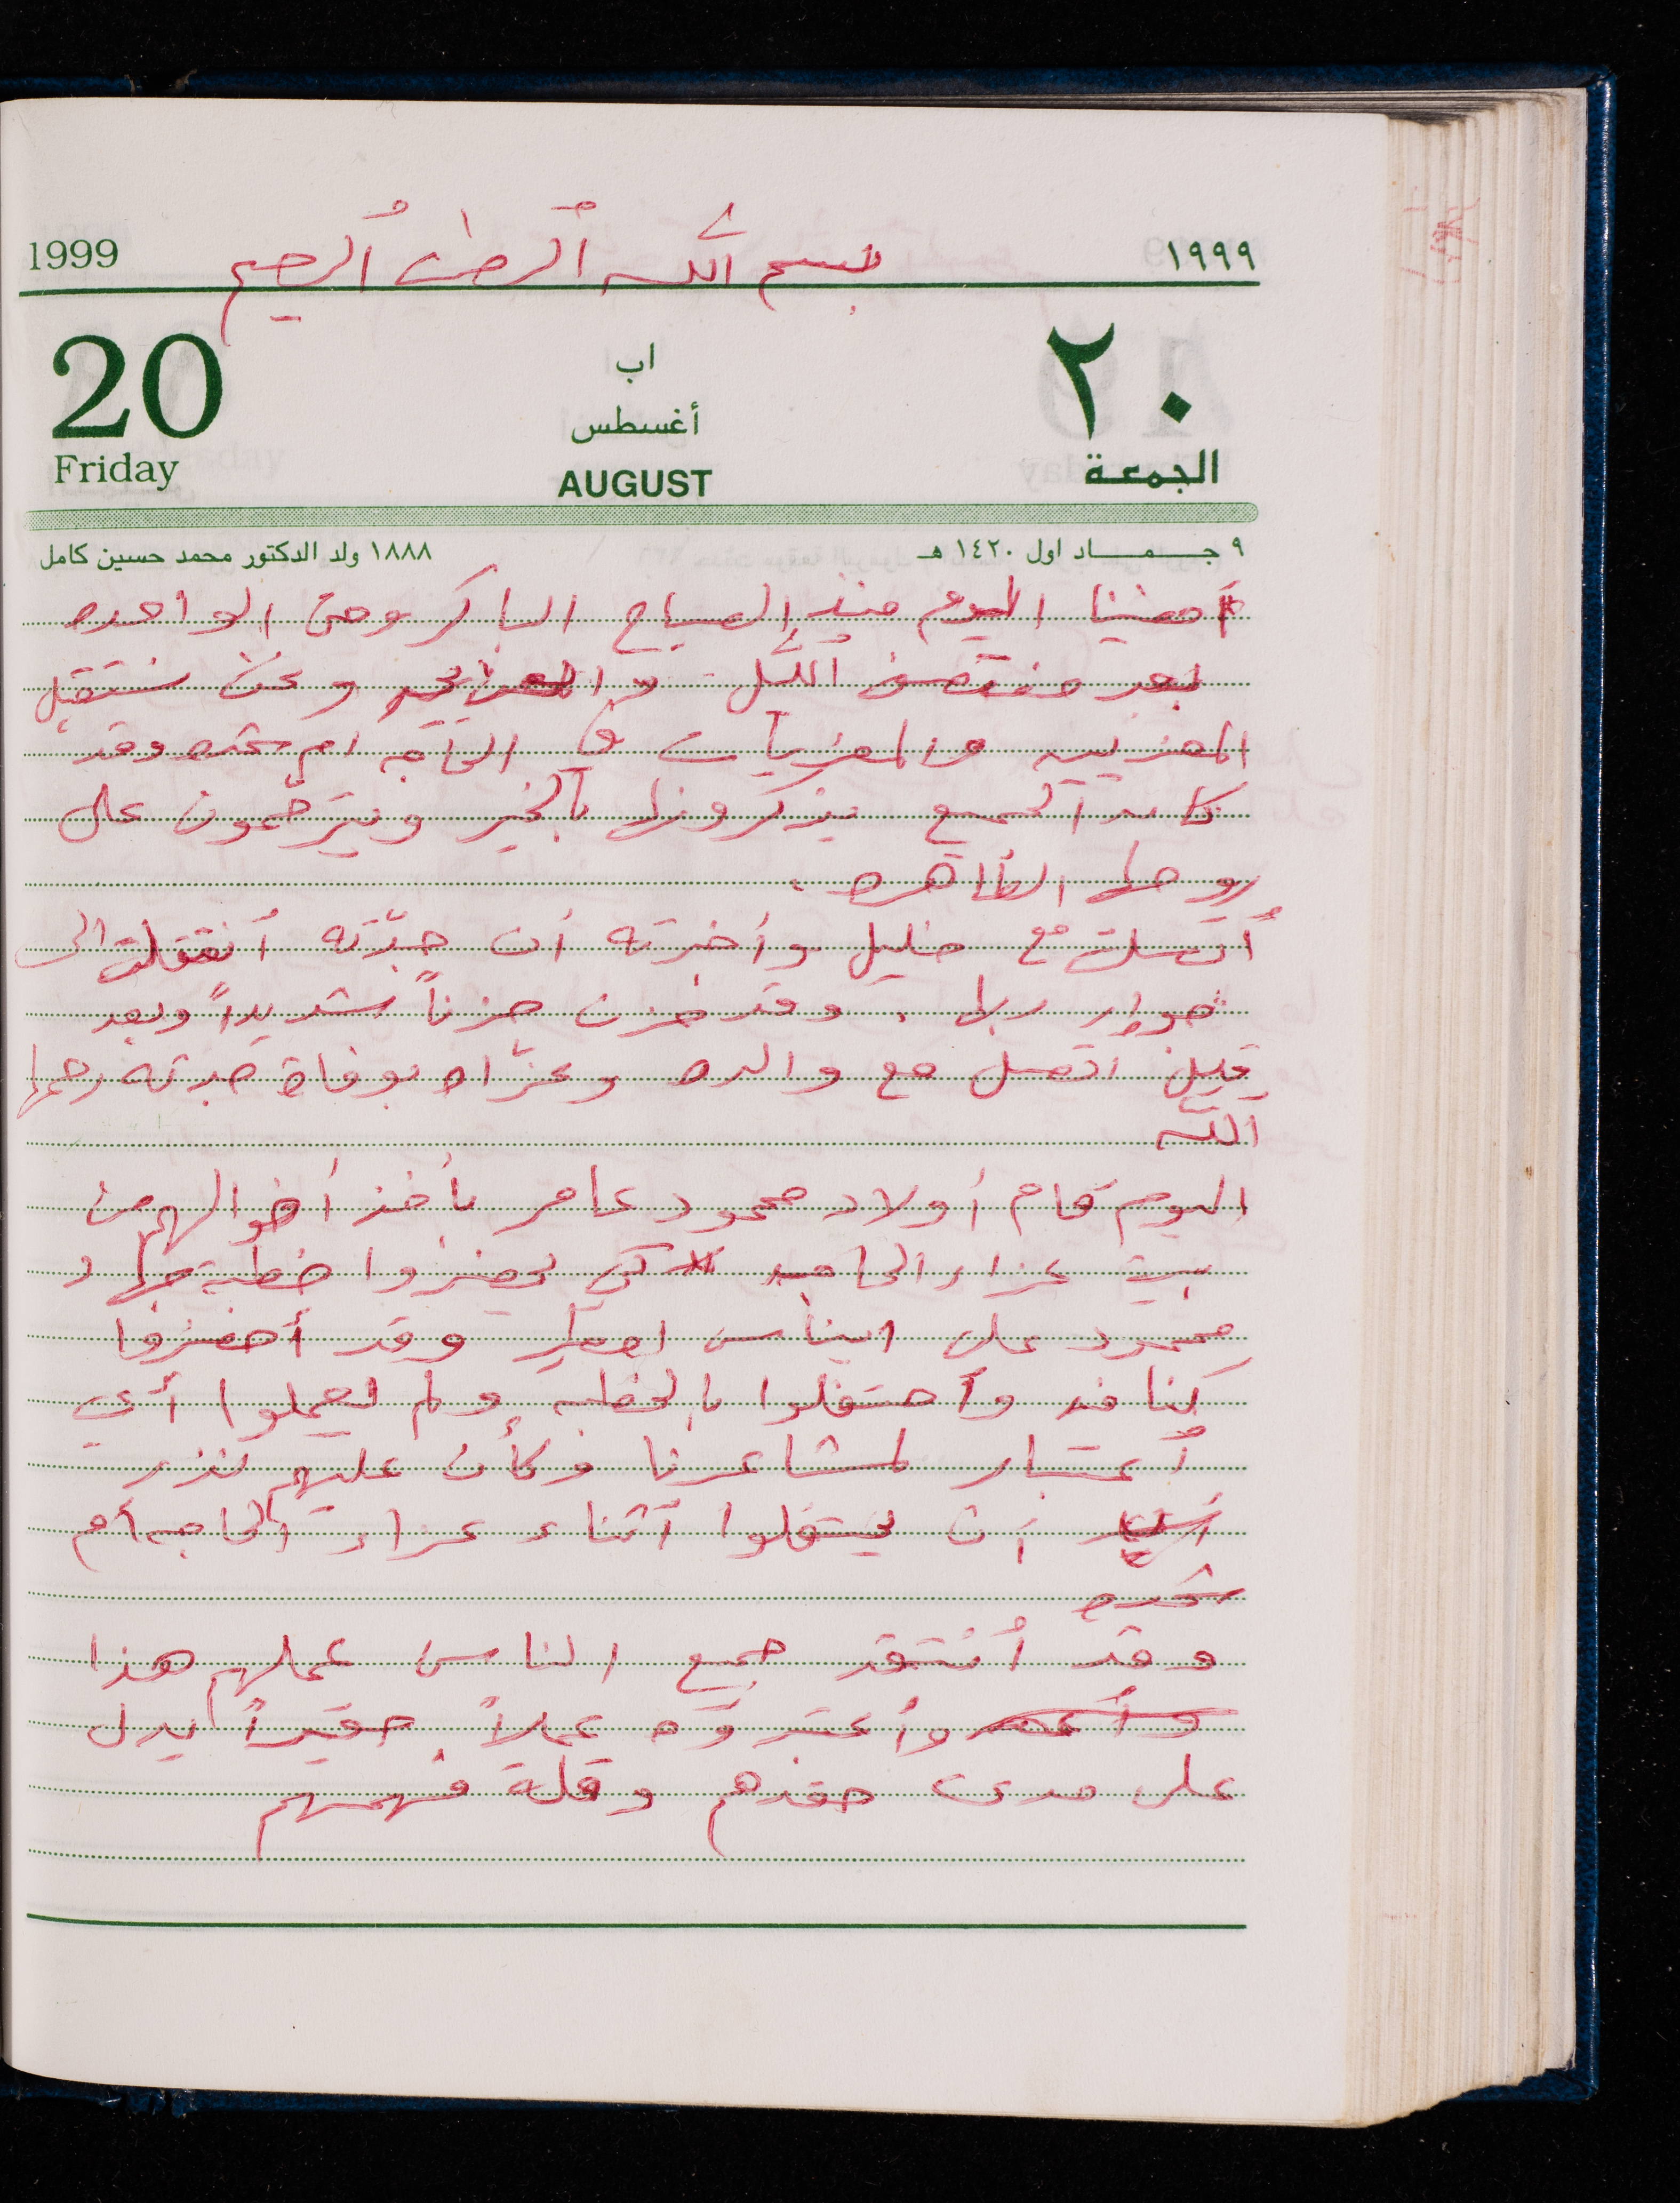 بسم الله الرحمن الرحيم
1999 ١٩٩٩
20 اب ٢٠
أغسطس
Friday AUGUST الجمعة
٩ جمـاد اول ١٤٢٠ هـ ١٨٨٨ ولد الدكتور محمد حسين كامل
أمضينا اليوم منذ الصباح الباكر وحتى الواحده
بعد منتصف الليل ونحن نستقبل
المعزيين والمعزيات في الحاجه ام شحده وقد
كان الجميع يذكرونها بالخير ويترحّمون على
روحها الطاهره.
أتصلت مع خليل وأخبرته أن جدّته أنتقلت الى
جوار ربها. وقد حزن حزناً شديداً وبعد
قليل اتصل مع والده وعزّاه بوفاة جدته رحمها
الله
اليوم قام أولاد محمود عامر بأخذ أخوالهم من
بيت عزاء الحاجه كي يحضروا خطبة جهاد
محمود على ايناس وقد أحضروا
كنافه وأحتفلوا بالخطبه ولم يعملوا أي
أعتبار لمشاعرنا وكأن عليهم نذر
أن يحتفلوا أثناء عزاء الحاجه أم
شحده
وقد أنتقد جميع الناس عملهم هذا
وأعتبروه عملاً حقيراً يدل
على مدى حقدهم وقلة فهمهم